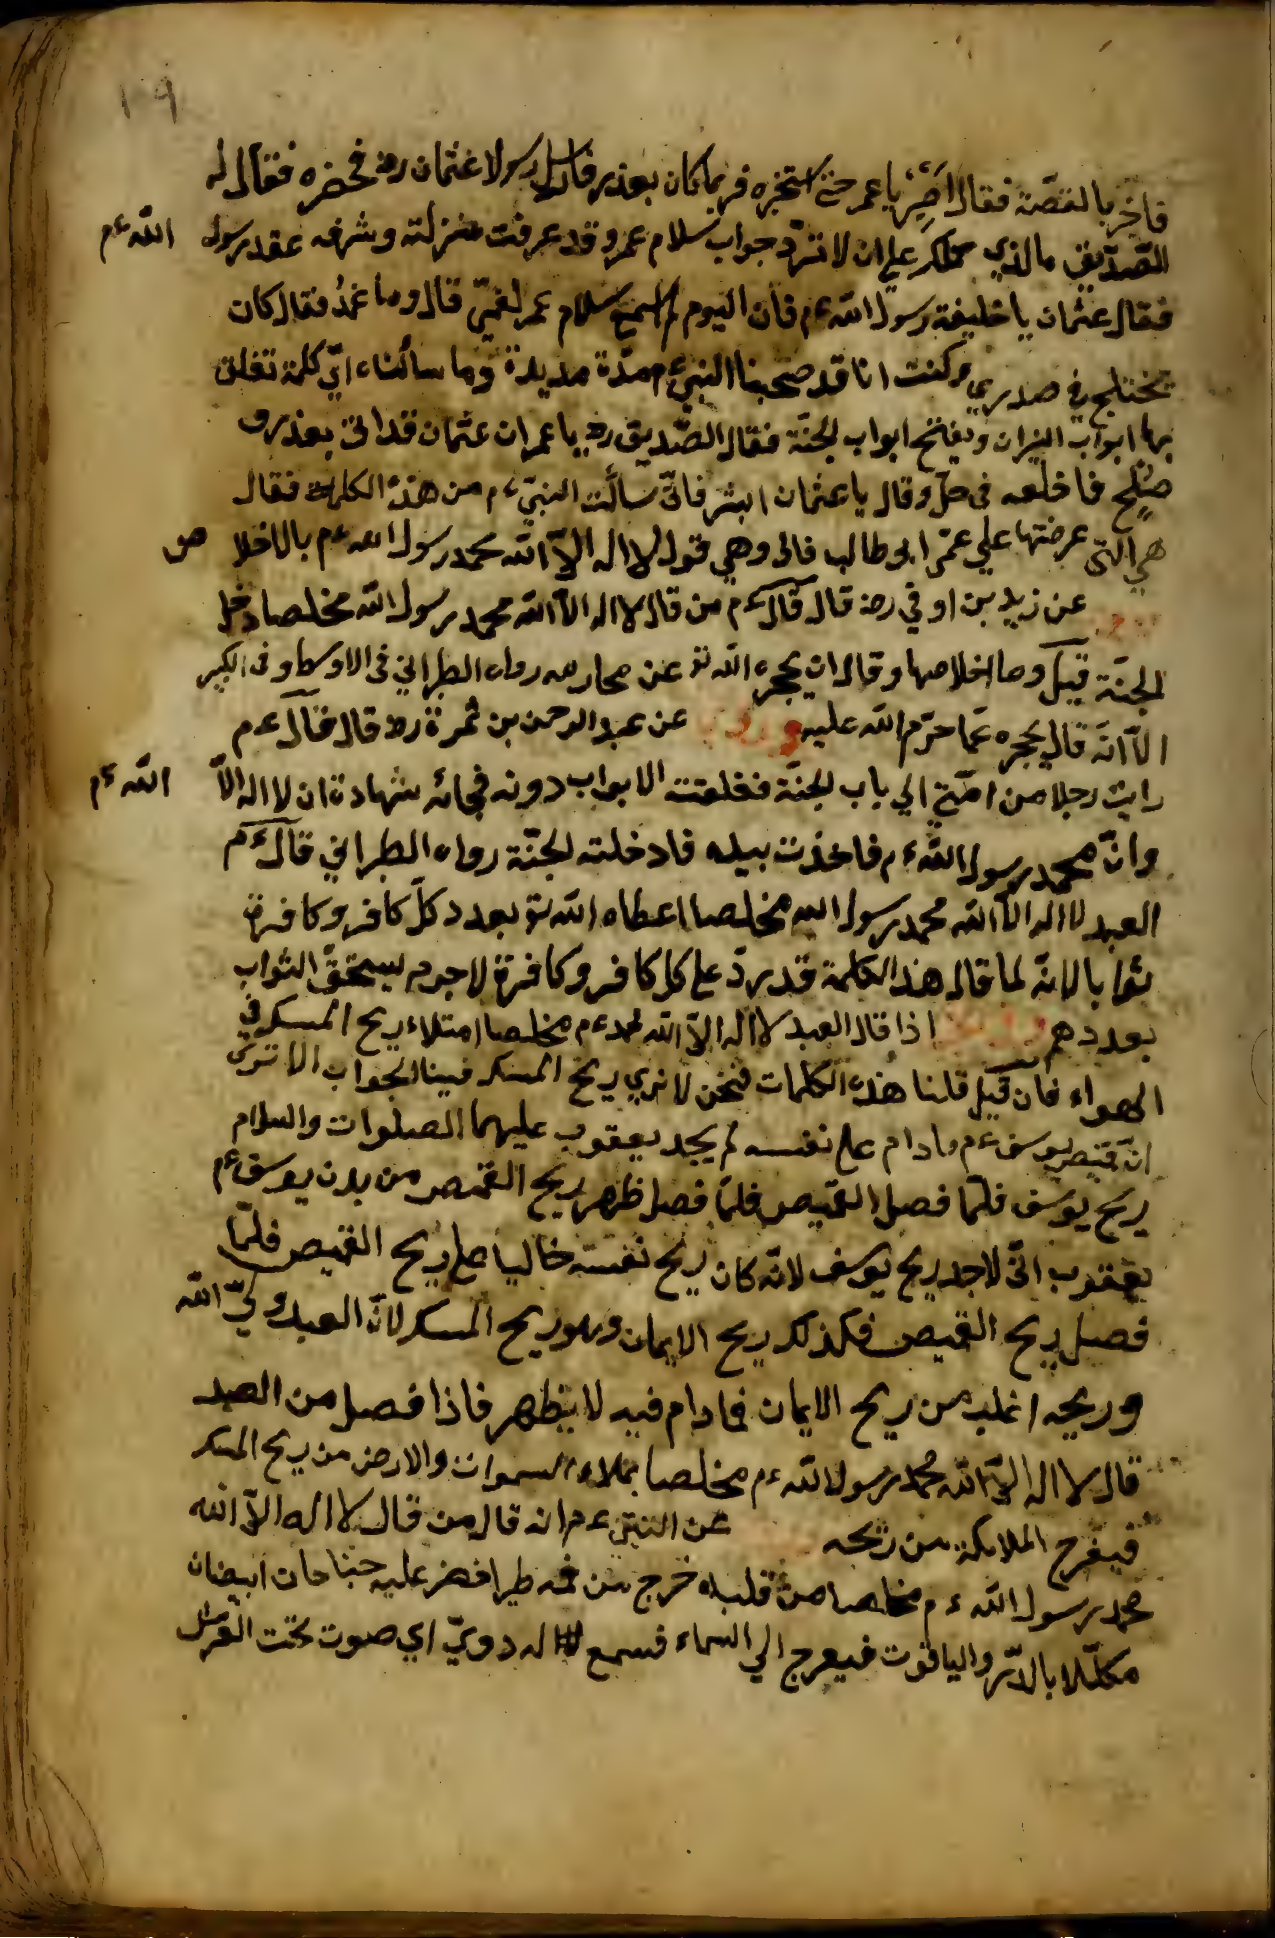 ١٩
فاخبر بالقصّة فقال اصبر يا عمر حتى استخبره فربما كان بعذر فارسل رسولا عثمان رضه فحضره فقال له
الصّدّيق ما الذي حملك على ان لا تردّ جواب سلام عمر وقد عرفت منزلته وشرفه عند رسول الله عم
فقال عثمان يا خليفة رسول الله عم فان اليوم لم اسمع سلام عمر لغمّي قال وما غمّك فقال كان
يختلج في صدري وكنت انا قد صحبنا النبي عم مدّة مديدة وما سألناه ايّ كلمة تغلق
بها ابواب النيران ويفتح ابواب الجنّة فقال الصّديق رض يا عمر ان عثمان قد اتى بعذر
فاخلعه في حلّ وقال يا عثمان ابشر فانّي سألت النبيّ عم من هذه الكلمة فقال
هي الّتي عرضتها علي عمّي ابو طالب فابى وهي قول لا اله الاّ الله محمد رسول الله عم بالاخلاص
عن زيد بن اوفي رضه قال قال عم من قال لا اله الاّ الله محمد رسول الله مخلصا دخل
الجنّة قيل وما اخلاصها وقال ان يحجره الله تع عن محارمه رواه الطبراني في الاوسط وفي الكبير
الاّ انّه قال يحجره عمّا حرّم الله عليه عن عبد الرحمن بن ثمرة رض قال قال عم
رايت رجلا من امّتي الي باب الجنّة فغلقت الابواب دونه فجائه شهادة ان لا اله الاّ الله عم
وانّ محمد رسول الله عم فاخذت بيده فادخلته الجنّة رواه الطبراني قال عم
العبد لا اله الاّ الله محمد رسول الله مخلصا اعطاه الله تع بعدد كلّ كافر وكافرة
ثوابا لانّه لما قال هذا الكلمة قد ردّ علي كل كافر وكافرة لا جرم يستحقّ الثواب
بعددهم اذا قال العبد لا اله الاّ الله محمد عم مخلصا امتلاء ريح المسك في
الهواء فان قيل قلنا هذه الكلمات فنحن لا نري ريح المسك فينا الجواب الا ترى
انّ قميص يوسف عم ما دام علي نفسه لم يجد يعقوب عليهما الصلوات والسلام
ريح يوسف فلمّا فصل القميص فلمّا فصل ظهر ريح القميص من بدن يوسف عم
يعقوب انّي لاجد ريح يوسف لانّه كان ريح نفسه غالبا علي ريح القميص فلمّا
فصل ريح القميص فكذلك ريح الايمان وهو ريح المسك لانّ العبد وليّ الله
وريحه اغلب من ريح الايمان فما دام فيه لا يظهر فاذا فصل من العبد
قال لا اله الاّ الله محمد رسول الله عم مخلصا يملاء السموات والارض من ريح المسك
فيفرح الملائكة من ريحه عن النبيّ عم انه قال من قال لا اله الاّ الله
محمد رسول الله عم مخلصا من قلبه خرج من فمه طير اخضر عليه جناحان ابيضان
مكلّلا بالدّر والياقوت فيعرج الي السماء فسمع له دويّ اي صوت تحت العرش